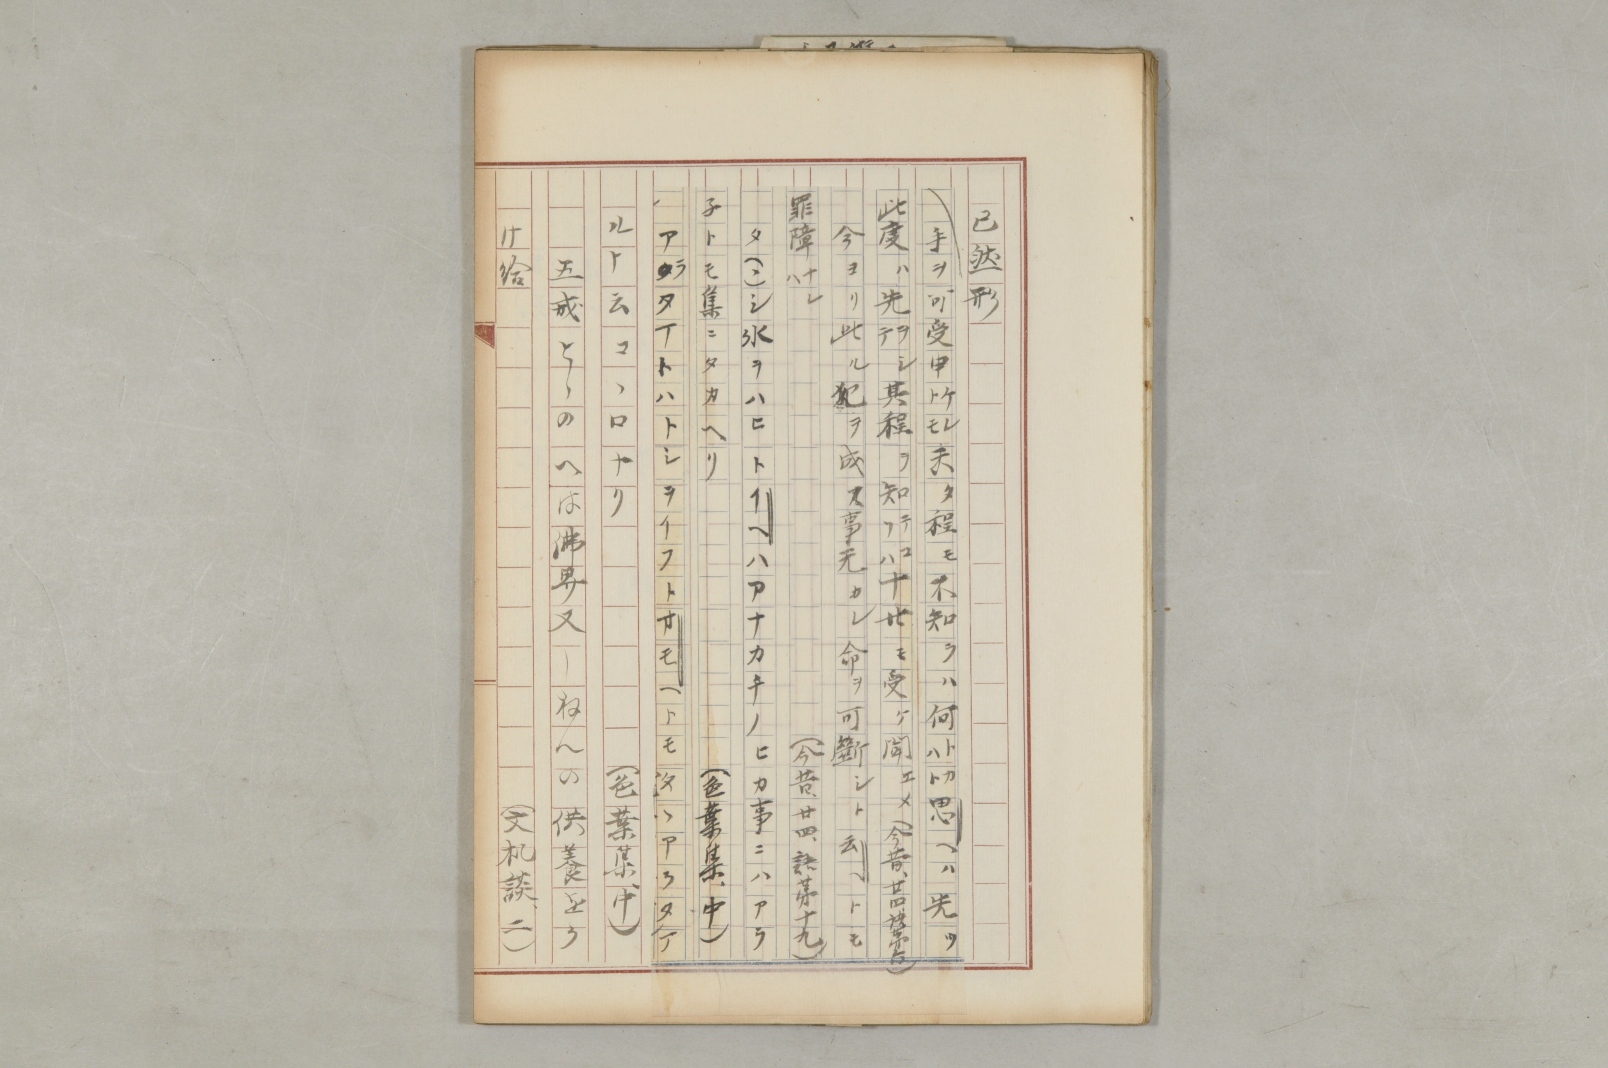 已然形
手ヲ可受申トケレモ未タ程モ不知ラハ何トカハト思ヘハ先ツ
此度ハ先ヲシテ其程ヲ知テコソハ十廿モ受ケ聞エメ(今昔、廿四、語第
今ヨリ此ル犯ヲ成ス事无カレ命ヲ可断シト云ヘトモ
罪障ナレハ (今昔、廿四、語第十九)
タ(ミ)シ氷ヲハヒトイヘハアナカチノヒカ事ニハアラ
子トモ集ニタカヘリ (色葉集、中)
アラタアトハトシヲイフトオモヘトモ アラタア
ルト云コヽロナリ (色葉集、中)
五戒とゝのへは佛界又ーねんの供養をう
け給 (文机談、二)